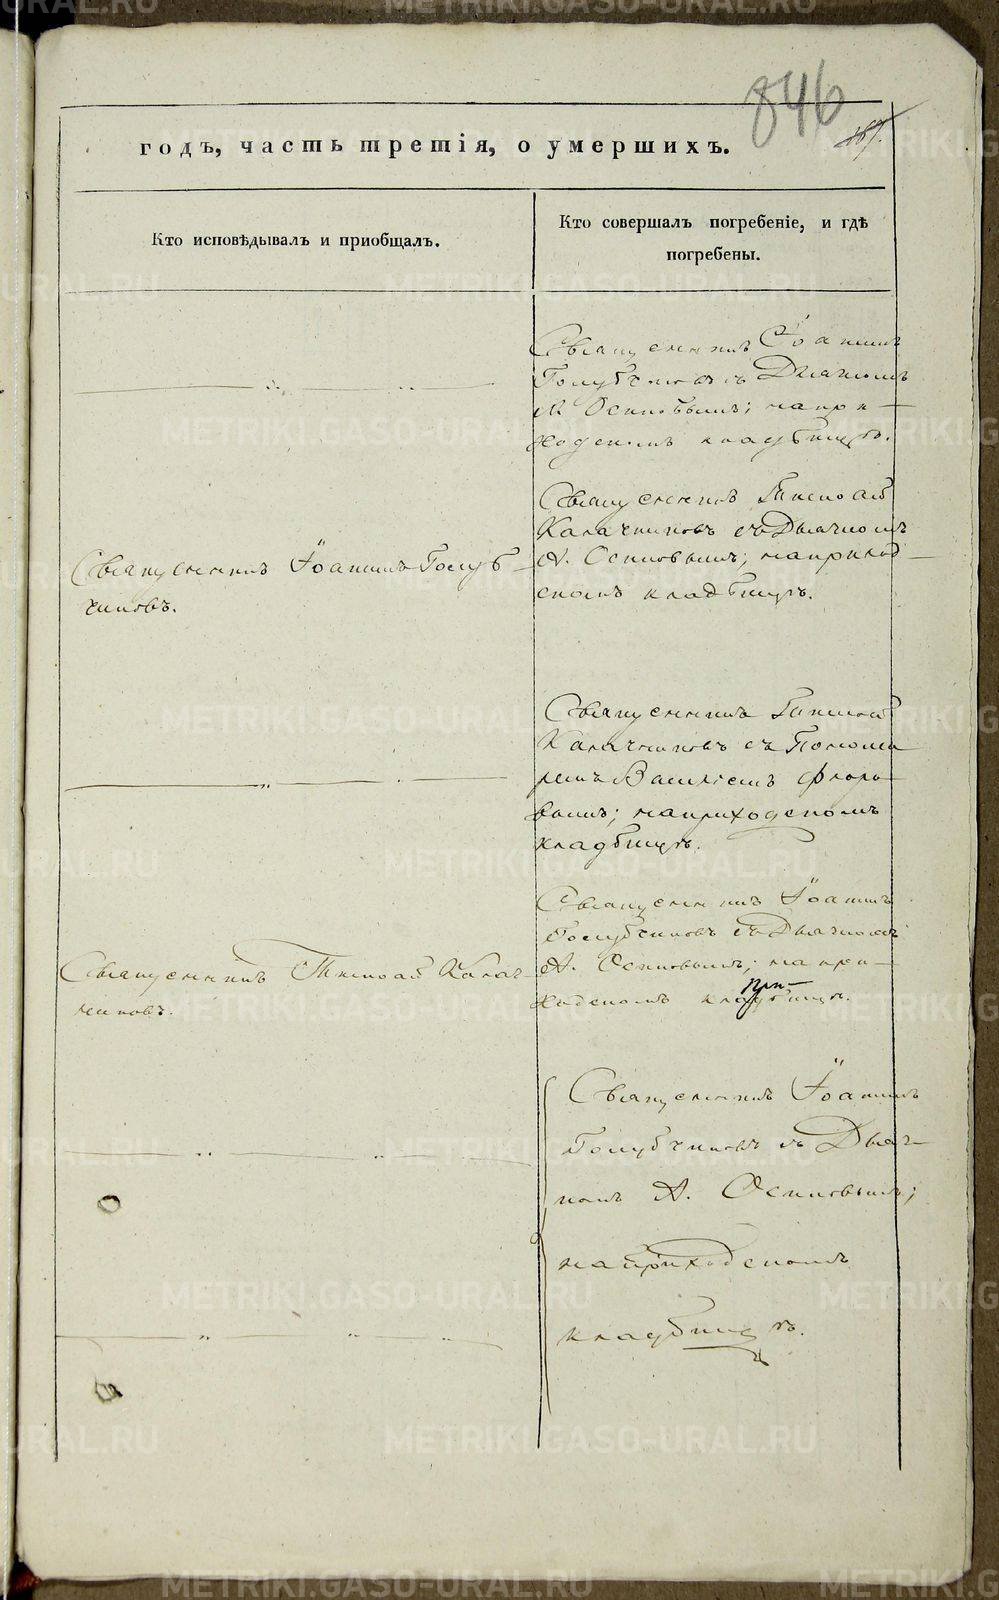 846
167.
годъ, часть третія, о умершихъ.
Кто исповѣдывалъ и приобщалъ.
Кто совершалъ погребеніе, и гдѣ
погребены.
Священникъ Іоаннъ
Голубчиковъ съ Дьячкомъ
А. Осиповымъ; на при-
ходскомъ кладбищѣ.
Священникъ Іоаннъ Голуб-
чиковъ.
Священникъ
Калачниковъ съ Дьячкомъ
А. Осиповымъ; на приход-
скомъ кладбищѣ.
Священникъ
Калачниковъ съ Понома-
ремъ Василіемъ Флоро-
вымъ; на приходскомъ
кладбищѣ.
Священникъ Калач-
никовъ.
Священникъ Іоаннъ
Голубчиковъ съ Дьячкомъ
А. Осиповымъ; на при-
ходскомъ кладбищѣ.
Священникъ Іоаннъ
Голубчиковъ съ Дьяч-
комъ А. Осиповымъ;
на приходскомъ
кладбищѣ.
METRIKI.GASO-URAL.RU